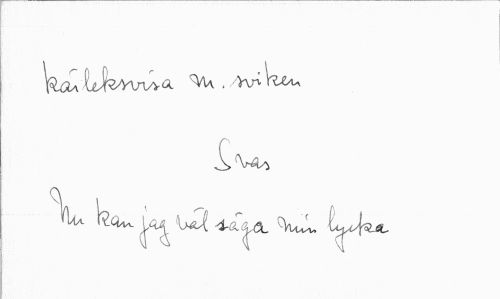 kärleksvisa m. sviken
Svas
Nu kan jag väl säga min lycka